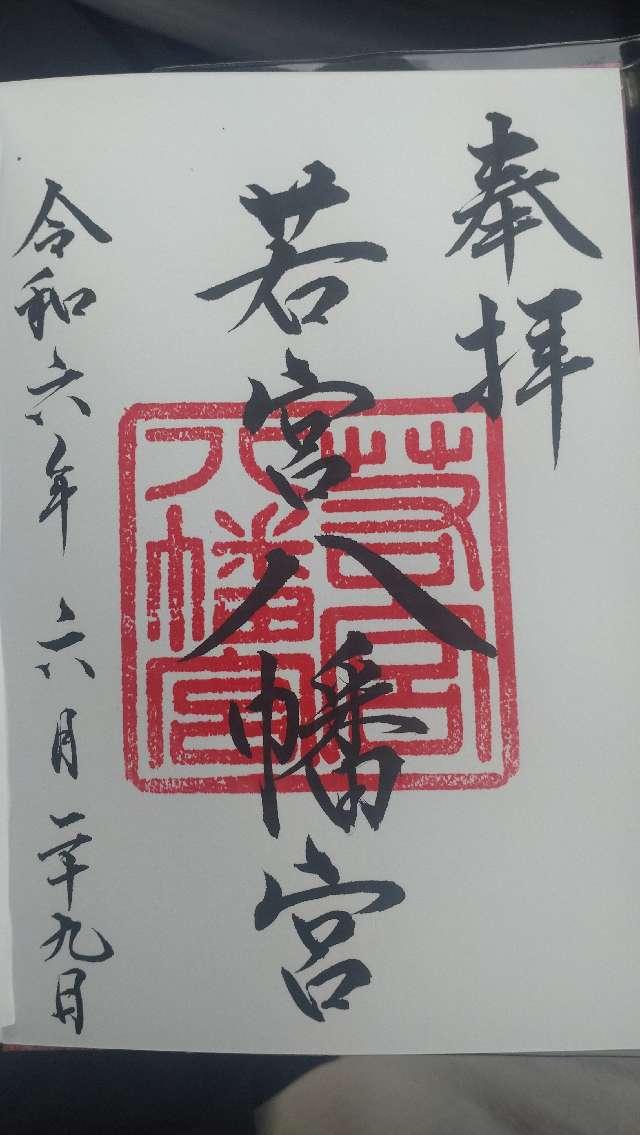 奉拝
若宮八幡宮
若宮
八幡宮
令和六年六月二十九日